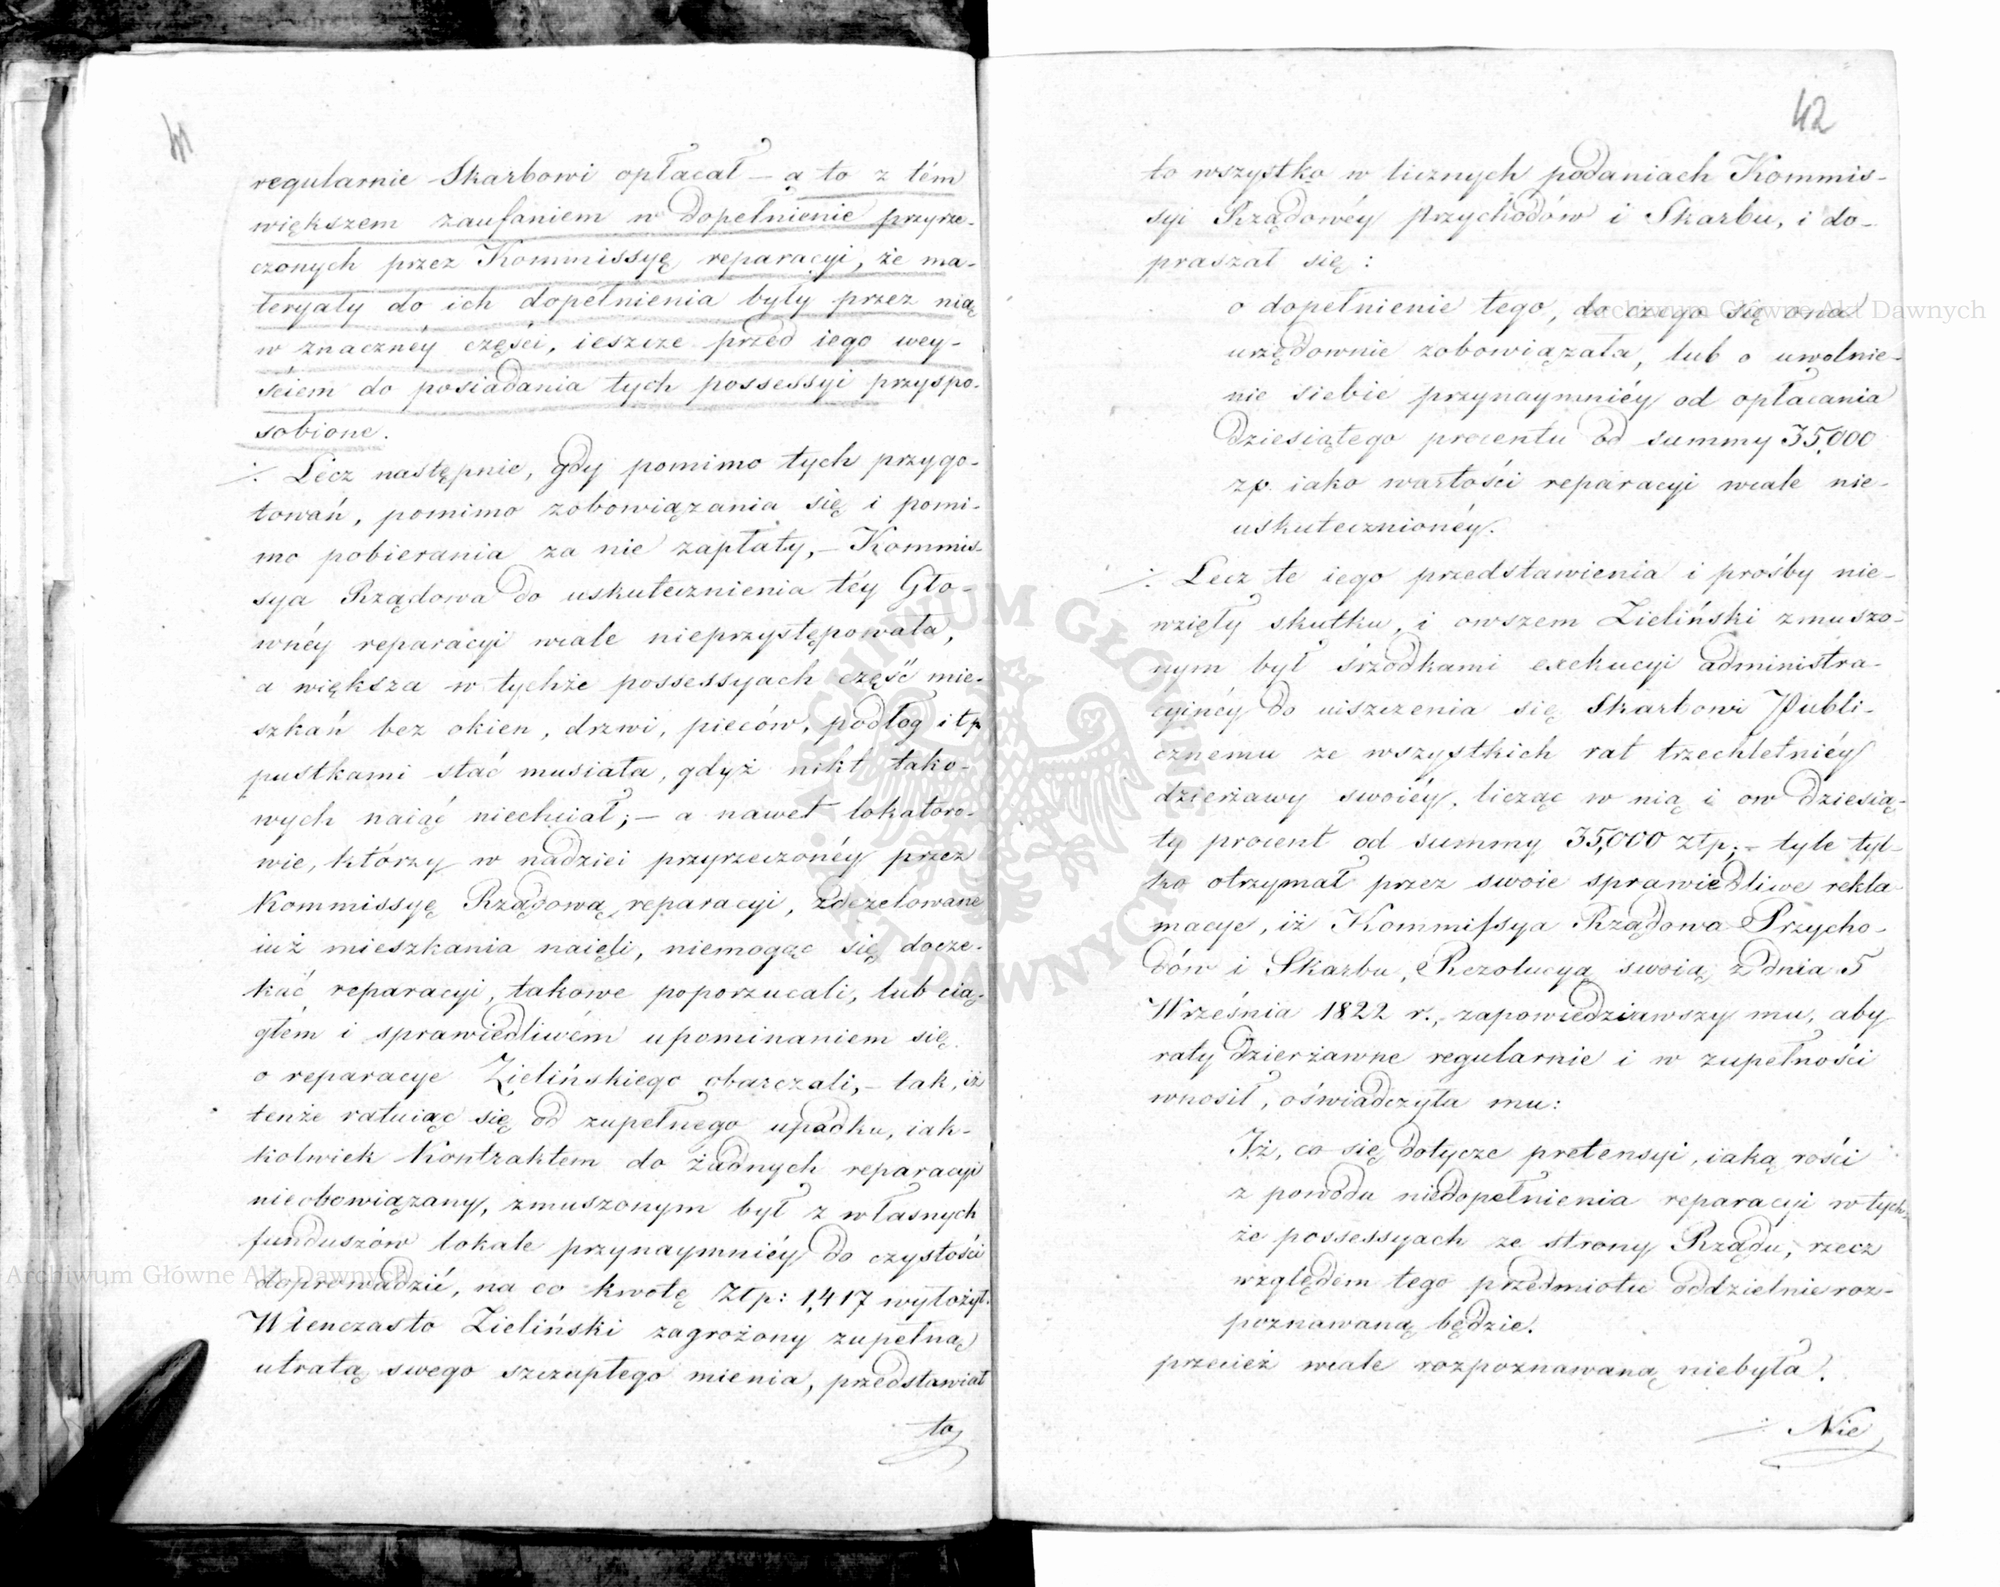 41
regularnie Skarbowi opłacał — a to z tém
większem zaufaniem w dopełnienie przyrze-
czonych przez Kommissyę reparacyi, że ma-
teryały do ich dopełnienia były przez nią
w znacznéy części, ieszcze przed iego wey-
ściem do posiadania tych possessyi przyspo-
sobione.
Lecz następnie, gdy pomimo tych przygo-
towań, pomimo zobowiązania się i pomi-
mo pobierania za nie zapłaty, — Kommis-
sya Rządowa do uskutecznienia téy Gło-
wnéy reparacyi wcale nieprzystępowała,
a większa w tychże possessyach część mie-
szkań bez okien, drzwi, pieców, podłog i tp
pustkami stać musiała, gdyż nikt tako-
wych naiąć niechciał; — a nawet lokatoro-
wie, którzy w nadziei przyrzeczonéy przez
Kommissyę Rządową reparacyi, zdezelowane
iuż mieszkania naięli, niemogąc się docze-
kać reparacyi, takowe poporzucali, lub cią-
głém i sprawiedliwém upominaniem się
o reparacye Zielińskiego obarczali, — tak, iż
tenże ratuiąc się od zupełnego upadku, iak-
kolwiek Kontraktem do żadnych reparacyi
nieobowiązany, zmuszonym był z własnych
funduszów lokale przynaymniéy do czystości
doprowadzić, na co kwotę Złp: 1,417 wyłożył.
Wtenczasto Zieliński zagrożony zupełną
utratą swego szczupłego mienia, przedstawiał
to
42
to wszystko w licznych podaniach Kommis-
syi Rządowéy Przychodów i Skarbu, i do-
praszał się:
o dopełnienie tego, do czego się ona
urzędownie zobowiązała, lub o uwolnie-
nie siebie przynaymniéy od opłacania
dziesiątego procentu od summy 35,000
zp. iako wartości reparacyi wcale nie-
uskutecznionéy.
Lecz te iego przedstawienia i prośby nie-
wzięły skutku, i owszem Zieliński zmuszo-
nym był śrzodkami exekucyi administra-
cyinéy do uiszczenia się Skarbowi Publi-
cznemu ze wszystkich rat trzechletniéy
dzierżawy swoiéy, licząc w nią i ow dziesią-
ty procent od summy 35,000 złp; — tyle tyl-
ko otrzymał przez swoie sprawiedliwe rekla-
macye, iż Kommissya Rządowa Przycho-
dów i Skarbu, Rezolucyą swoią z dnia 5
Września 1822 r., zapowiedziawszy mu, aby
raty dzierżawne regularnie i w zupełności
wnosił, oświadczyła mu:
Iż, co się dotycze pretensyi, iaką rości
z powodu niedopełnienia reparacyi w tych-
że possessyach ze strony Rządu, rzecz
względem tego przedmiotu oddzielnie roz-
poznawaną będzie.
przecież wcale rozpoznawaną niebyła.
Nie
Archiwum Główne Akt Dawnych
Archiwum Główne Akt Dawnych
ARCHIWUM GŁÓWNE AKT DAWNYCH